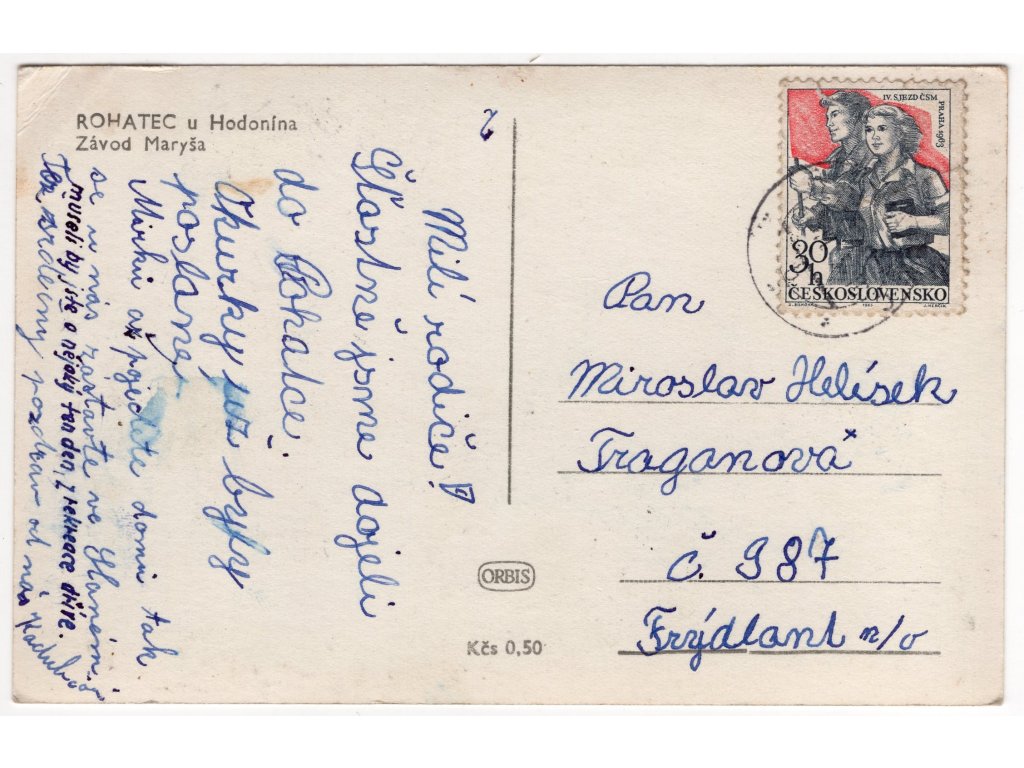 ROHATEC u Hodonína
Závod Maryša
Milí rodiče!
Šťastně jsme dojeli
do Rohatce.
Okurky již byly
poslané.
Mirku až pojedete domů tak
se u nás zastavte ve Slaném.
museli by jste o nejaký ten den z rekreace dříve.
Též srdečný pozdrav od nás
IV. SJEZD ČSM
PRAHA 1963
30 h
ČESKOSLOVENSKO
Pan
Miroslav Helísek
Traganová
č. 987
Frýdlant n/o
ORBIS
Kčs 0,50